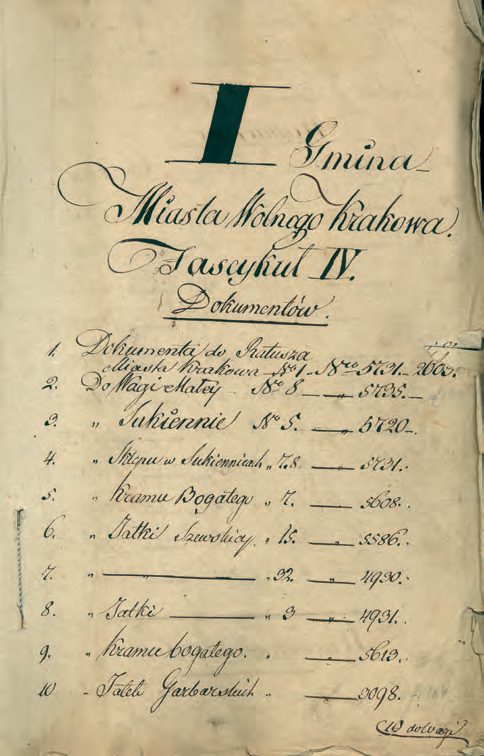 I Gmina
Miasta Wolnego Krakowa.
Fascykuł IV.
Dokumentów.
1. Dokumenta do Ratusza
Miasta Krakowa - No 1 - Nro 5731 - 2603.
2. Do Wagi Małej - No 8 - „ - 5735. -
3. „ Sukiennic No 5. - „ - 5720 -
4. „ Sklepu w Sukiennicach „ 7.8 - „ - 5731. -
5. „ Kramu Bogatego „ 7. - „ - 5608. -
6. „ Jatki Szewskiej „ 15. - „ - 5586. -
7. „ - „ - „ 32. - „ - 4930. -
8. „ Jatki - „ 3 - „ - 4931. -
9. „ Kramu bogatego. „ - „ - 5613. -
10 „ Jatek Garbarskich „ - „ - 3098. -